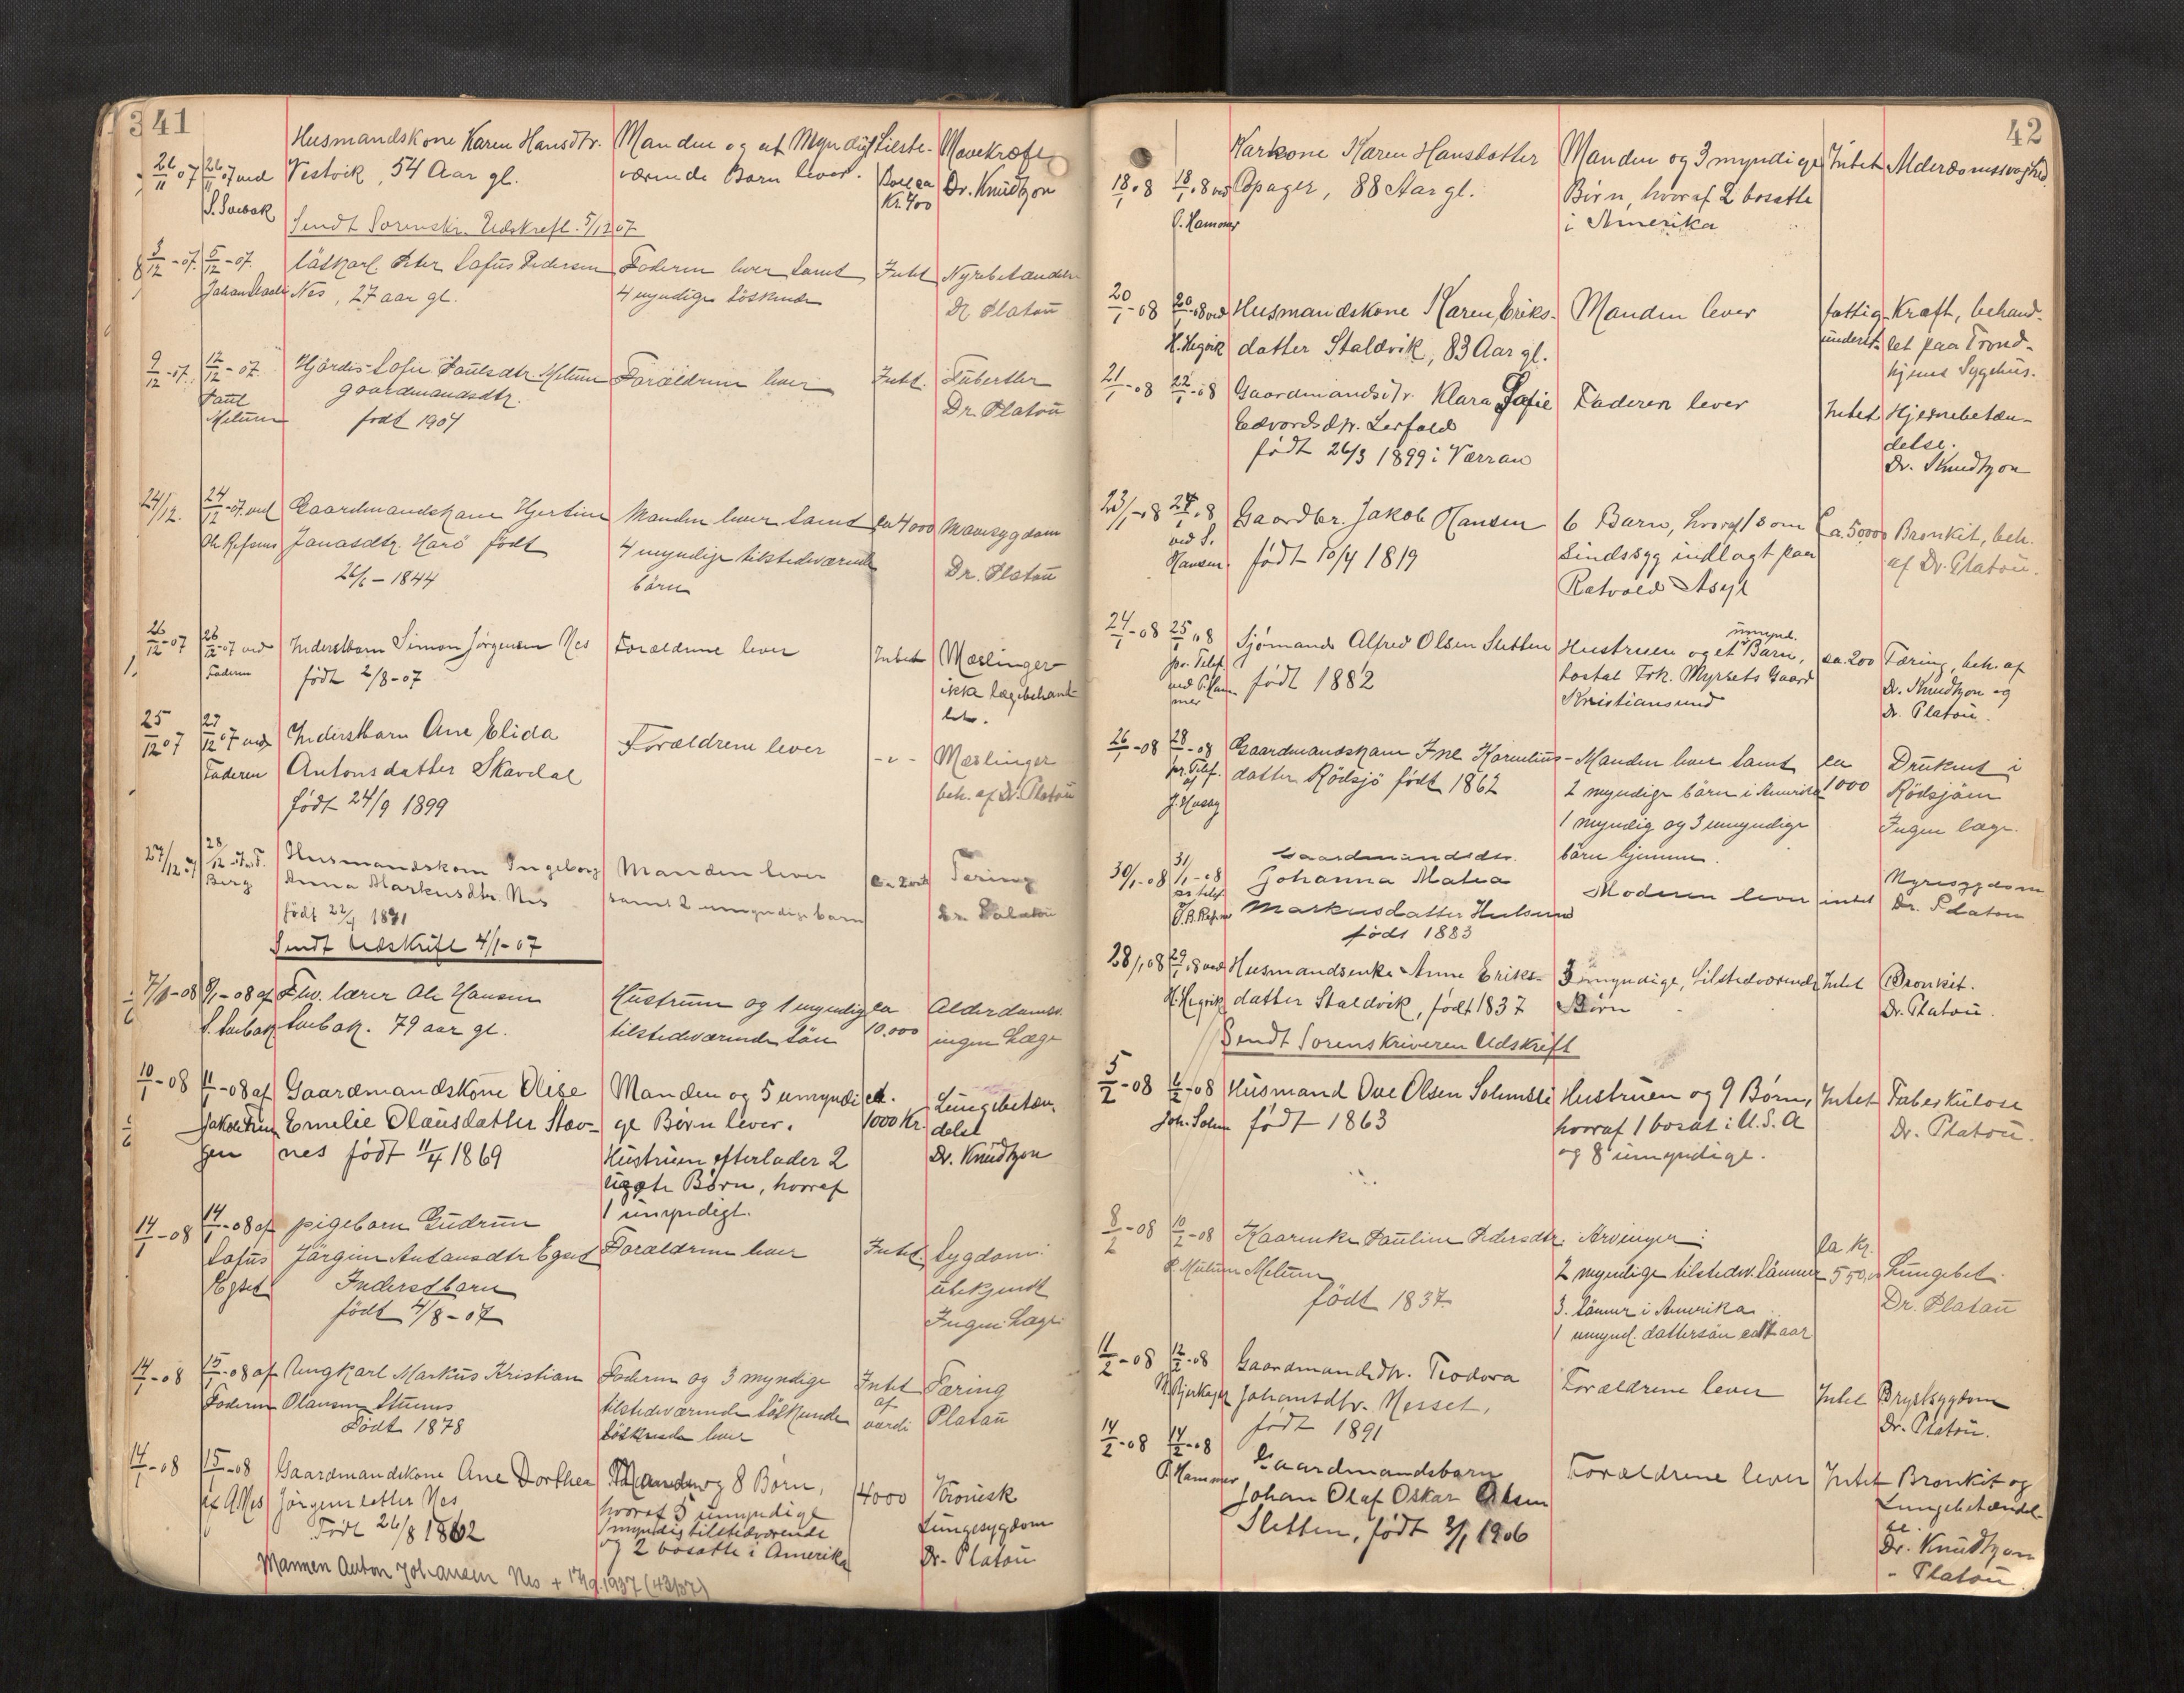 341
Husmandskone Karen Hansdtr. Manden og et Myndig tilste- Mavekræft
26/11 07 26/11 07 ved Vestvik, 54 Aar gl. værende Barn lever. Boet ca Dr. Knudtzon
kr. 400
Sendt Sorenskr. Udskrift 5/12 07
3/12 - 07. 5/12 - 07. Löskarl Peter Lofus Pedersen Faderen lever samt Intet
Nes, 27 aar gl. 4 myndige Söskende Dr Platou
9/12 - 07. 12/12 - 07. Hjördis Sofie Paulsdtr. Melum Forældrene lever Intet.
Paul gaardmandsdtr. Dr. Platou
Melum född 1904
24/12. 24/12 - 07. ved Gaardmandskone Hjertine Manden lever samt ca 4000 Mavesygdom
Jonasdtr. Harö födt 4 myndige tilstedeværende Dr. Platou
26/6 - 1844 börn
26/12 - 07 28/12 - 07 ved Inderstbarn Simon Jörgensen Nes Forældrene lever Intet Mæslinger
Faderen födt 2/8 - 07 ikke lægebehand-
let.
25/12 07 27/12 07 ved Inderstbarn Ane Elida Forældrene lever - " - Mæslinger
Faderen Antonsdatter Skavdal beh. af Dr. Platou
født 24/9 1899
27/12 07 28/12 Husmandskone Ingeborg Manden lever Tæring
Berg Anna Markusdtr. Nes samt 2 umyndige barn Dr. Platou
født 22/4 1871
Sendt Udskrift 4/1 - 07
7/1 - 08 9/1 - 08 af Fhv. lærer Ole Hansen Hustruen og 1 myndig ca Alderdomss.
79 aar gl. tilstedeværende sön 10.000 ingen Læge
10/1 - 08 11/1 - 08 af Gaardmandskone Elise Manden og 5 umyndi- ca. Lungebetæn-
Emelie Olausdatter Stav- ge Børn lever. 1000 Kr. delse
nes født 11/4 1869 Hustruen efterlader 2 Dr. Knudtzon
uægte Børn, hvoraf
1 umyndigt.
14/1 - 08 14/1 - 08 af pigebarn Gudrun
Lofus Jörgine Antonsdtr Egset Forældrene lever Intet. Sygdom:
Egset Inderstbarn ubekjendt
födt 4/8 - 07 Ingen Læge
14/1 - 08 15/1 - 08 af Ungkarl Markus Kristian Faderen og 3 myndige Intet Tæring
Faderen Olausen Stumes tilstedeværende Söskende af Platou
Född 1878 Söskende lever værdi
14/1 - 08 15/1 - 08 Gaardmandskone Ane Dorthea Manden og 8 Börn, 4000 Kronisk
af A Nes Jörgensdatter Nes hvoraf 5 umyndige Lungesygdom
Född 26/8 1862 1 myndig tilstedværende Dr. Platou
og 2 bosatte i Amerika
Mannen Anton Johansen Nes + 17/9.1937 (43/37)
42
Karkone Karen Hansdatter Manden og 3 myndige Intet Alderdomssvaghed
18/1 08 18/1 08 ved Opager, 88 Aar gl. Börn, hvoraf 2 bosatte
P. Hammer i Amerika
20/1 - 08 20/1 08 ved Husmandskone Karen Eriks- Manden lever fattig- Kræft, behand-
H. Hegvik datter Staldvik, 83 Aar gl. underst. let paa Trond-
hjems Sygehus.
21/1 - 08 22/1 - 08 Gaardmandsdtr. Klara Sofie Faderen lever Intet Hjernebetæn-
Edvardsdtr. Lerfald delse.
født 26/3 1899 i Værran Dr. Knudtzon
23/1 - 08 24/1 08 Gaardbr. Jakob Hansen 6 Barn, hvoraf 1 som Ca. 5000 Bronkit, beh.
ved S. Sindssyg indlagt paa af Dr. Platou.
Hansen. född 10/4 1819 Rotvold Asyl
24/1 - 08 25/1 08 Sjømand Alfred Olsen Sletten Hustruen og et umynd. Barn, ca. 200 Tæring, beh. af
pr. Telef. bostat Frk. Myrsets Gaard Dr. Knudtzon og
ved P. Hammer født 1882 Kristiansund Dr. Platou.
26/1 - 08 28/1 - 08 Gaardmandskone Kornelius- Manden lever samt ca Druknet i
pr. Telf. datter Rödsjö født 1862 2 myndige börn i Amerika 1000 Rödsjöen
af 1 myndig og 3 umyndige Ingen læge.
J. Husby börn hjemme.
30/1 - 08 31/1 - 08 Gaardmandsdtr.
Johanna Matea Moderen lever intet Nyresygdom
Markusdatter Dr. Platou
født 1883
28/1 08 29/1 08 ved Husmandsenke Anne Eriks- 3 myndige, tilstedværende Intet Bronkit.
H. Hegvik datter Staldvik, født 1837 Börn Dr. Platou.
Sendt Sorenskriveren Udskrift
5/2 - 08 6/2 - 08 Husmand Ove Olsen Solemsli Hustruen og 9 Børn, Intet Tuberkulose
Joh. Solem født 1863 hvoraf 1 bosat i U.S.A Dr. Platou.
og 8 umyndige.
8/2 - 08 10/2 - 08 Kaarenke Pauline Pedersdtr. Arvinger:
Melum 2 myndige tilstedv. sönner Ca kr. 550,00 Lungebet.
födt 1837. 3. sönner i Amerika Dr. Platou
1 umynd. dattersön aar
11/2 - 08 12/2 - 08 Gaardmandsdtr. Teodora Forældrene lever Intet Brystsygdom
Johansdtr. Messet, Dr. Platou.
født 1891
14/2 - 08 14/2 - 08 Gaardmandsbarn Forældrene lever Intet Bronkit og
P. Hammer Johan Olaf Oskar Olsen Lungebetændel-
Sletten, født 3/1 1906 se.
Dr. Knudtzon
- Platou